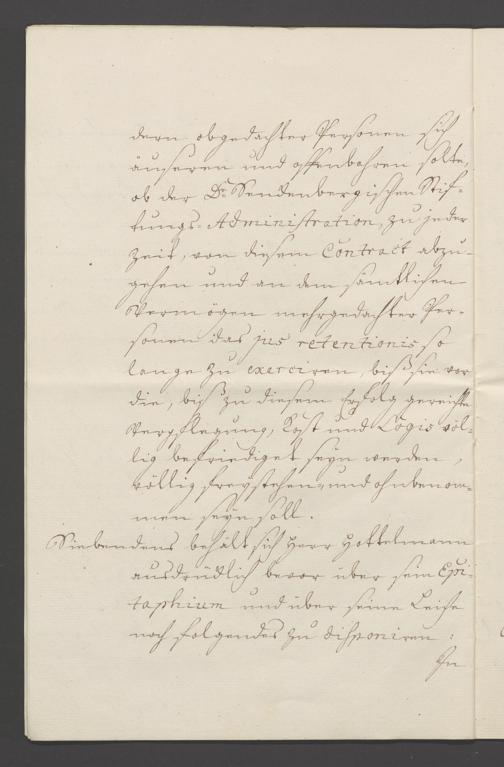 dern obgedachter Personen sich
äuseren und offenbahren solte,
ob der Dr. Sendenbergischen Stif-
tungs-Administration, zu jeder
Zeit, von diesem Contract abzu-
gehen und an dem sämtlichen
Vermögen mehrgedachter Per-
sonen das jus retentionis so
lange zu exerciren, biß sie vor
die, biß zu diesem Erfolg gereichte
Verpflegung, Kost und Logis völ-
lig befriediget seyn werden,
völlig freystehen, und ohnbenom-
men seyn soll.
Siebendens behält sich Herr Hottelmann
ausdrücklich bevor über sein Epi-
taphium und über seine Leiche
noch folgendes zu disponiren:
In